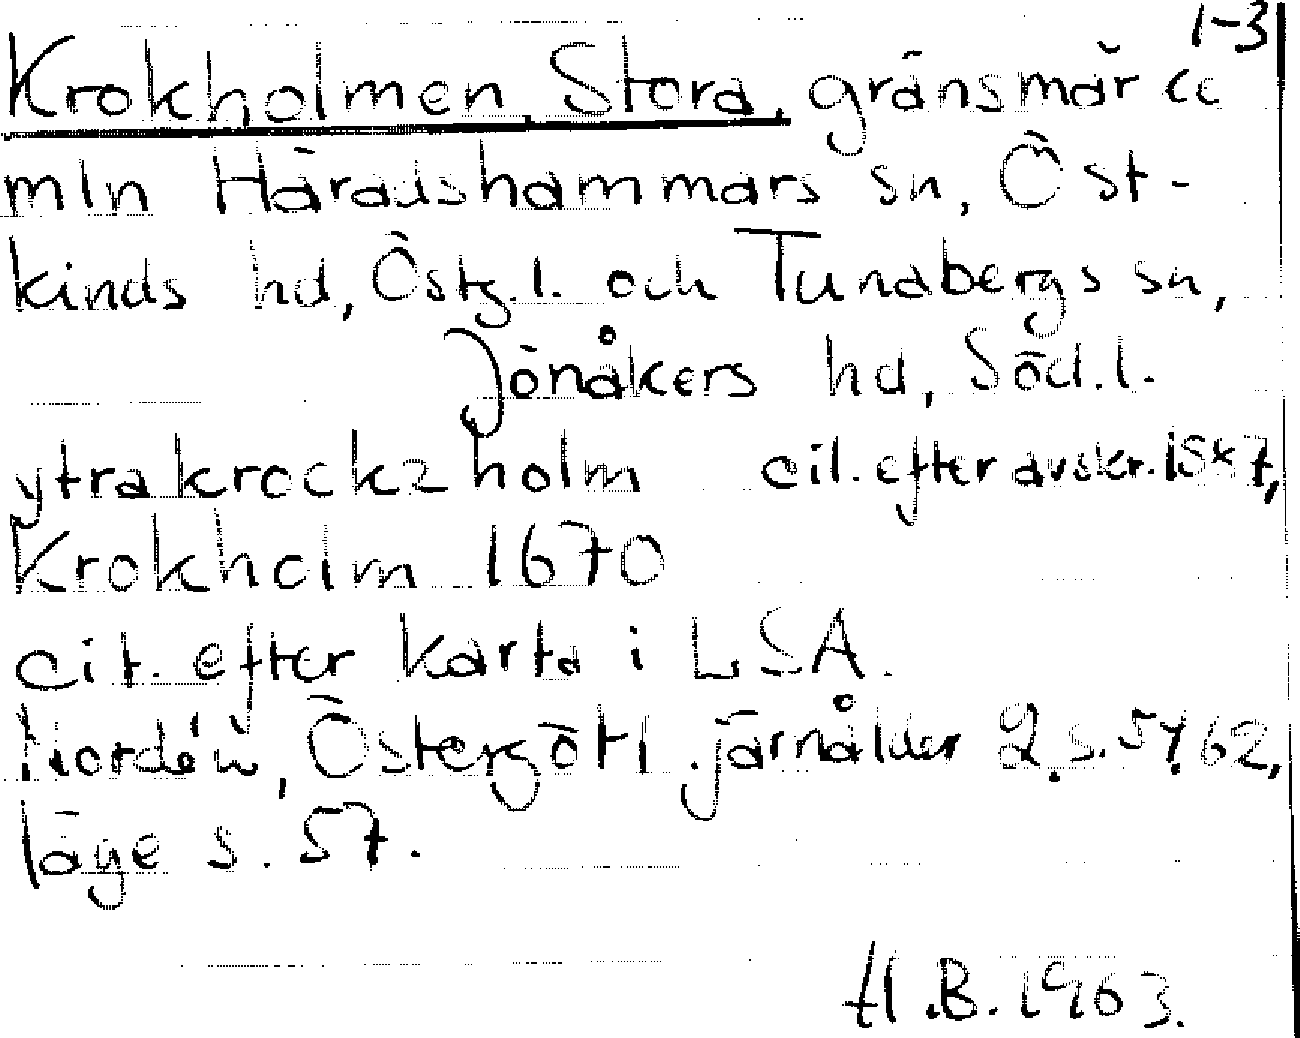 1-3
Krokholmen Stora, gränsmärke
mln Häradshammars sn, Öst-
kinds hd, Östg.l. och Tunabergs sn,
Jönåkers hd, Söd.l.
ytra krockz holm cit. efter avskr.
Krokholm 1670
cit. efter karta i LSA.
Nordén, Östergötl. järnålder 2, s. 57, 62,
läge s. 57.
H.B. 1963.